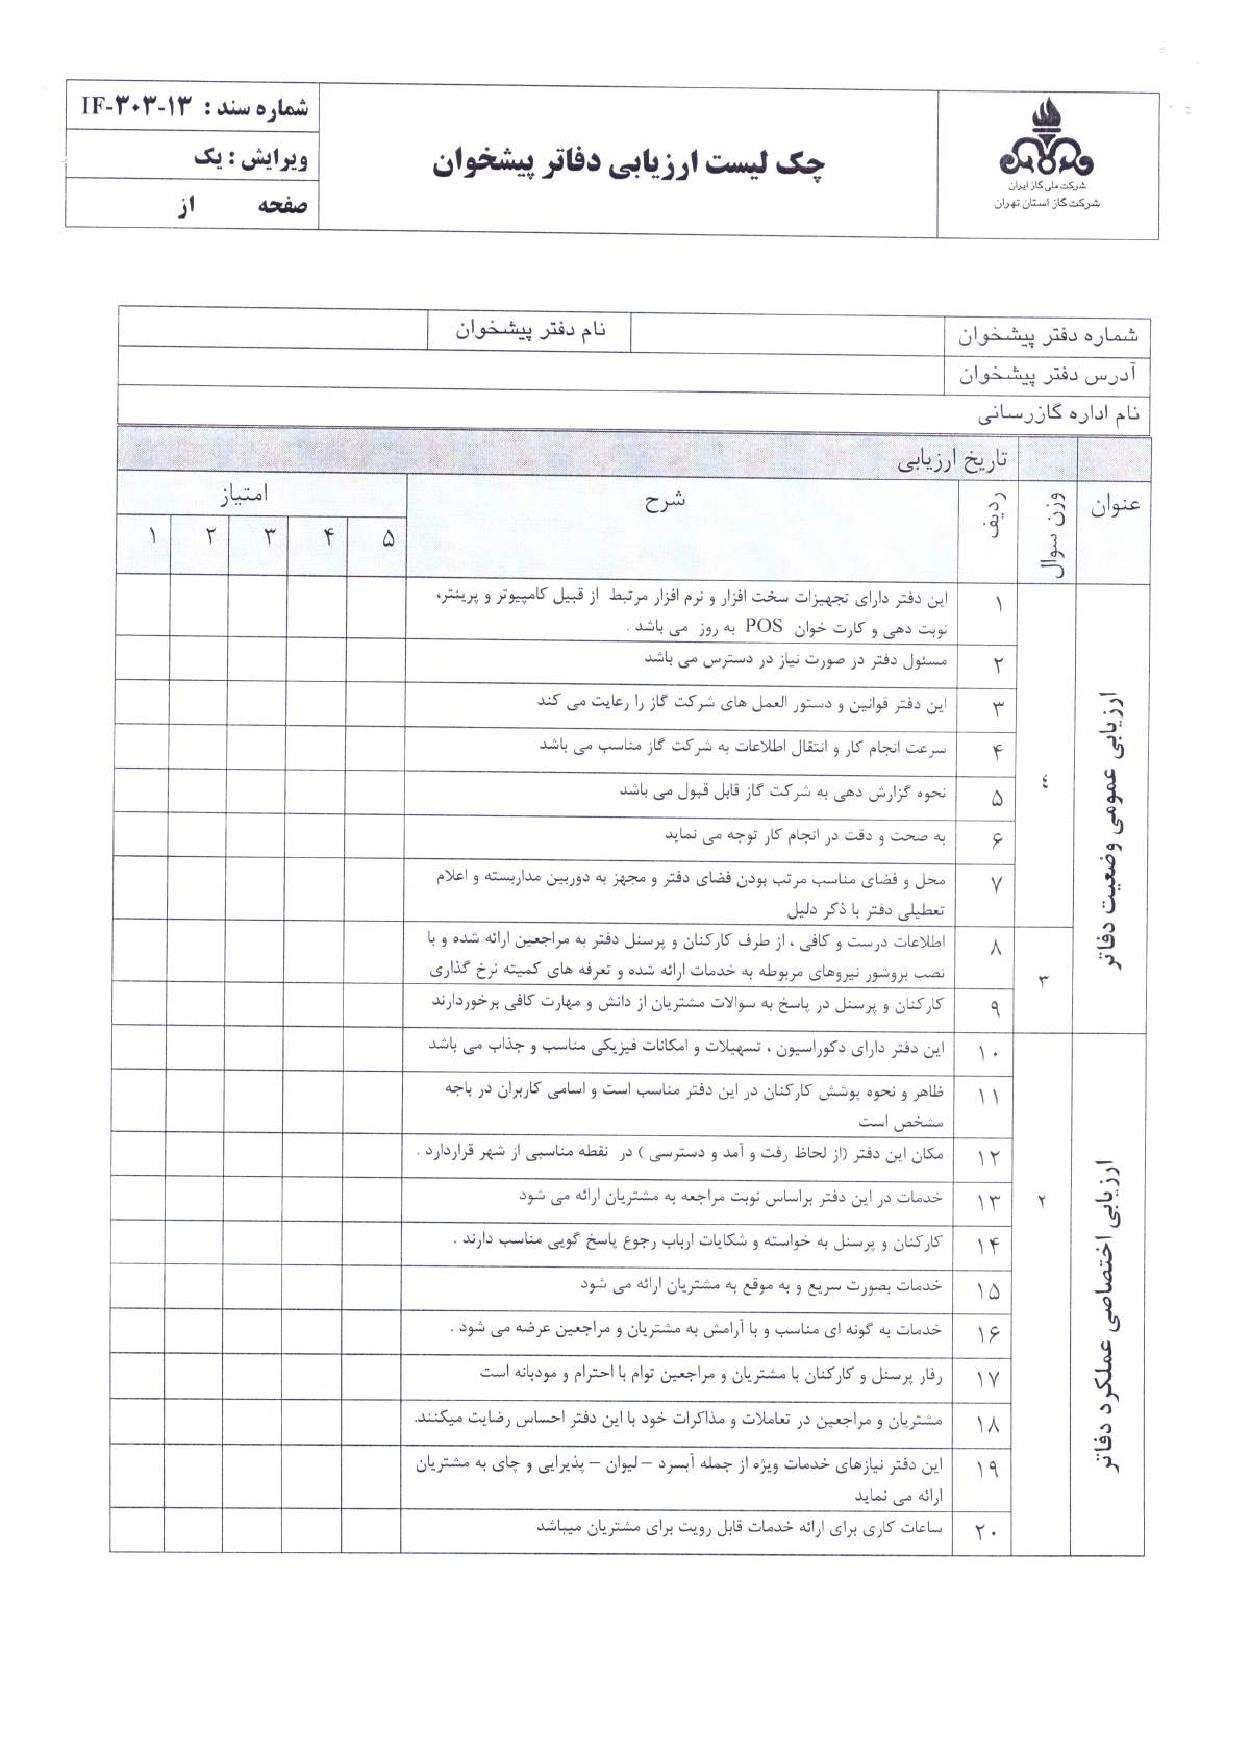 شرکت ملی گاز ایران
شرکت گاز استان تهران
چک لیست ارزیابی دفاتر پیشخوان
شماره سند : IF-۳۰۳-۱۳
ویرایش : یک
صفحه از
شماره دفتر پیشخوان
نام دفتر پیشخوان
آدرس دفتر پیشخوان
نام اداره گازرسانی
تاریخ ارزیابی
عنوان
وزن سوال
ردیف
شرح
امتیاز
۵ ۴ ۳ ۲ ۱
ارزیابی عمومی وضعیت دفاتر
۴
۱ این دفتر دارای تجهیزات سخت افزار و نرم افزار مرتبط از قبیل کامپیوتر و پرینتر،
نوبت دهی و کارت خوان POS به روز می باشد .
۲ مسئول دفتر در صورت نیاز در دسترس می باشد
۳ این دفتر قوانین و دستور العمل های شرکت گاز را رعایت می کند
۴ سرعت انجام کار و انتقال اطلاعات به شرکت گاز مناسب می باشد
۵ نحوه گزارش دهی به شرکت گاز قابل قبول می باشد
۶ به صحت و دقت در انجام کار توجه می نماید
۷ محل و فضای مناسب مرتب بودن فضای دفتر و مجهز به دوربین مداربسته و اعلام
تعطیلی دفتر با ذکر دلیل
۳
۸ اطلاعات درست و کافی ، از طرف کارکنان و پرسنل دفتر به مراجعین ارائه شده و با
نصب بروشور نیروهای مربوطه به خدمات ارائه شده و تعرفه های کمیته نرخ گذاری
۹ کارکنان و پرسنل در پاسخ به سوالات مشتریان از دانش و مهارت کافی برخوردارند
ارزیابی اختصاصی عملکرد دفاتر
۲
۱۰ این دفتر دارای دکوراسیون ، تسهیلات و امکانات فیزیکی مناسب و جذاب می باشد
۱۱ ظاهر و نحوه پوشش کارکنان در این دفتر مناسب است و اسامی کاربران در باجه
مشخص است
۱۲ مکان این دفتر (از لحاظ رفت و آمد و دسترسی ) در نقطه مناسبی از شهر قراردارد .
۱۳ خدمات در این دفتر براساس نوبت مراجعه به مشتریان ارائه می شود
۱۴ کارکنان و پرسنل به خواسته و شکایات ارباب رجوع پاسخ گویی مناسب دارند .
۱۵ خدمات بصورت سریع و به موقع به مشتریان ارائه می شود
۱۶ خدمات به گونه ای مناسب و با آرامش به مشتریان و مراجعین عرضه می شود .
۱۷ رفار پرسنل و کارکنان با مشتریان و مراجعین توام با احترام و مودبانه است
۱۸ مشتریان و مراجعین در تعاملات و مذاکرات خود با این دفتر احساس رضایت میکنند.
۱۹ این دفتر نیازهای خدمات ویژه از جمله آبسرد – لیوان – پذیرایی و چای به مشتریان
ارائه می نماید
۲۰ ساعات کاری برای ارائه خدمات قابل رویت برای مشتریان میباشد